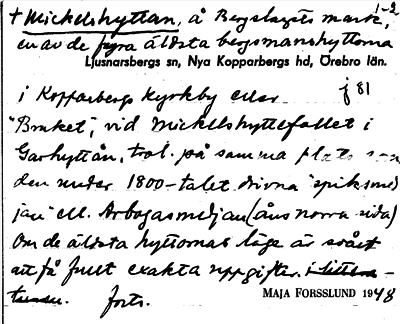 1-2
+ Mickelshyttan, å Bergslagets mark,
en av de fyra äldsta bergsmanshyttorna
Ljusnarsbergs sn, Nya Kopparbergs hd, Örebro län.
i Kopparbergs kyrkby eller j 81
"Bruket", vid Mickelshyttefallet i
Garhyttån, trol. på samma plats som
den under 1800-talet drivna "spiksmed
jan" ell. Arbogasmedjan (åns norra sida)
Om de äldsta hyttornas läge är svårt
att få fullt exakta uppgifter.
forts. MAJA FORSSLUND 1948